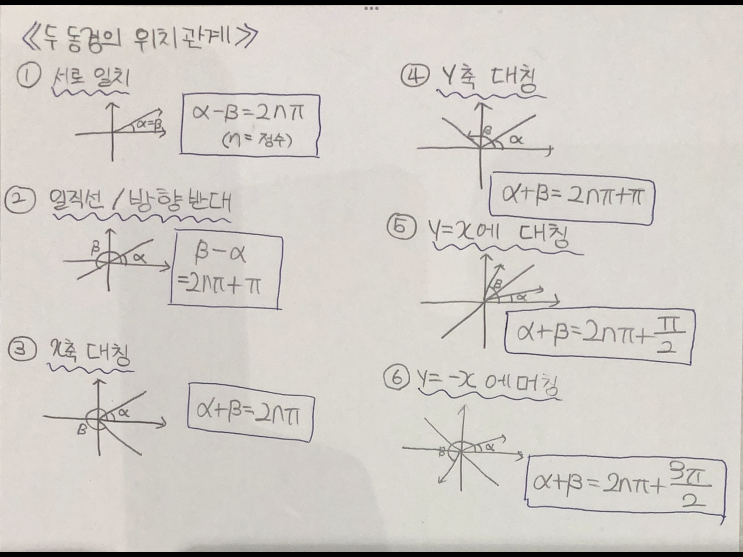 《두 동경의 위치관계》
① 서로 일치
α=β
α-β=2nπ
(n=정수)
② 일직선 / 방향반대
β
α
β-α
=2nπ+π
③ x축 대칭
α
β
α+β=2nπ
④ Y축 대칭
β
α
α+β=2nπ+π
⑤ Y=x에 대칭
β
α
α+β=2nπ+π/2
⑥ Y=-x에 대칭
β
α
α+β=2nπ+3π/2